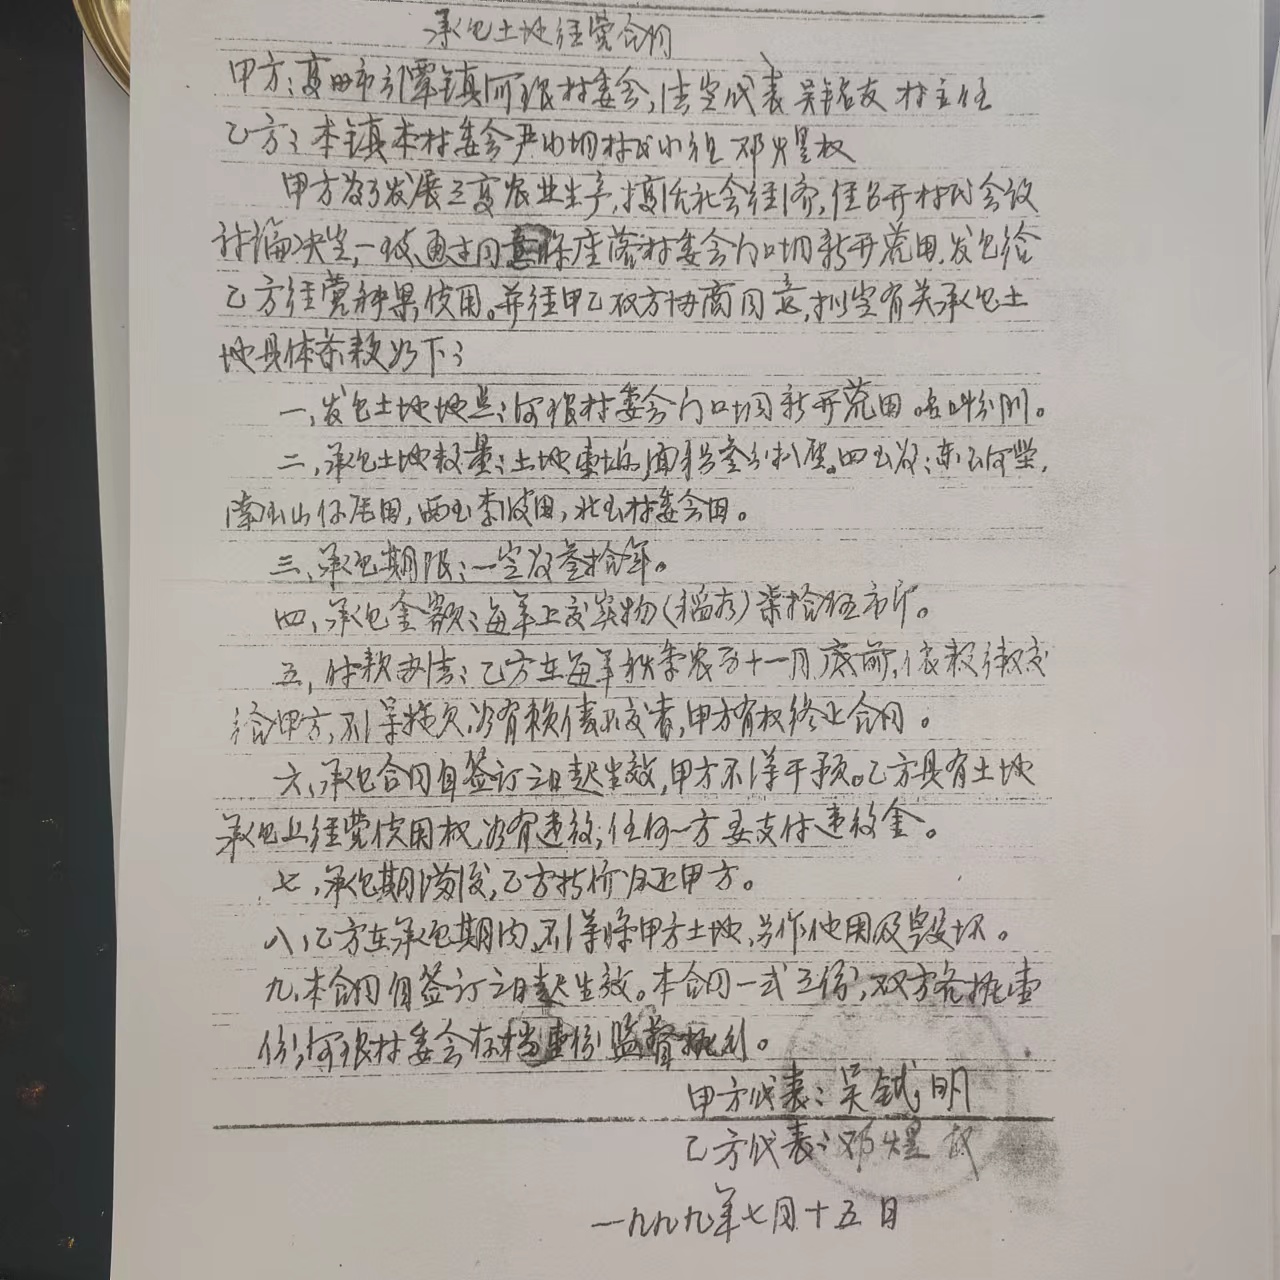 承包土地经营合同
甲方:高州市潭镇河根村委会,法定代表吴铭友 村主任
乙方:本镇本村委会尹山垌村民小组 邓煜权
甲方为了发展三高农业生产,搞活社会经济,经召开村民会议
讨论决定,一致通过同意将座落村委会门口垌新开荒田,发包给
乙方经营种果使用。并经甲乙双方协商同意,拟定有关承包土
地具体条款如下:
一、发包土地地点:河根村委会门口垌新开荒田。
二、承包土地数量:土地壹块,面积叁分扒厘。四至为:东至河堂,
南至山仔尾田,西至李波田,北至村委会田。
三、承包期限:一定为叁拾年。
四、承包金额:每年上交实物(稻谷)柒拾伍市斤。
五、付款办法:乙方在每年秋季农历十一月底前,依款缴交
给甲方,不得拖欠,如有赖债不交者,甲方有权终止合同。
六、承包合同自签订之日起生效,甲方不得干预。乙方具有土地
承包上经营使用权,如有违约,任何一方要支付违约金。
七、承包期满后,乙方折价归还甲方。
八、乙方在承包期内,不得将甲方土地,另作他用及毁坏。
九、本合同自签订之日起生效。本合同一式三份,双方各执壹
份,河根村委会存档壹份监督执行。
甲方代表:吴钺明
乙方代表:邓煜权
一九九九年七月十五日